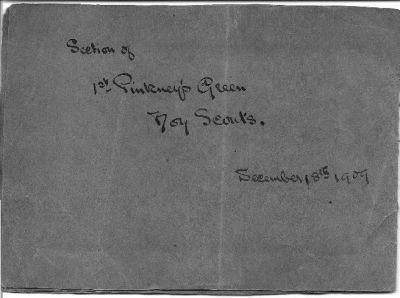 Section of
1st Pinkney's Green
Boy Scouts.
December 18th 1909